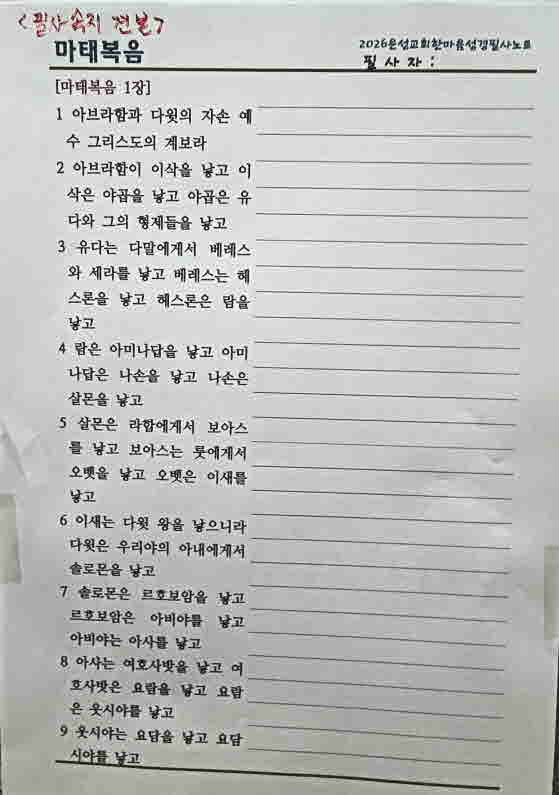 <필사 속지 견본>
마태복음
2026은성교회한마음성경필사노트
필 사 자 :
[마태복음 1장]
1 아브라함과 다윗의 자손 예
수 그리스도의 계보라
2 아브라함이 이삭을 낳고 이
삭은 야곱을 낳고 야곱은 유
다와 그의 형제들을 낳고
3 유다는 다말에게서 베레스
와 세라를 낳고 베레스는 헤
스론을 낳고 헤스론은 람을
낳고
4 람은 아미나답을 낳고 아미
나답은 나손을 낳고 나손은
살몬을 낳고
5 살몬은 라합에게서 보아스
를 낳고 보아스는 룻에게서
오벳을 낳고 오벳은 이새를
낳고
6 이새는 다윗 왕을 낳으니라
다윗은 우리야의 아내에게서
솔로몬을 낳고
7 솔로몬은 르호보암을 낳고
르호보암은 아비야를 낳고
아비야는 아사를 낳고
8 아사는 여호사밧을 낳고 여
호사밧은 요람을 낳고 요람
은 웃시야를 낳고
9 웃시야는 요담을 낳고 요담
시야를 낳고